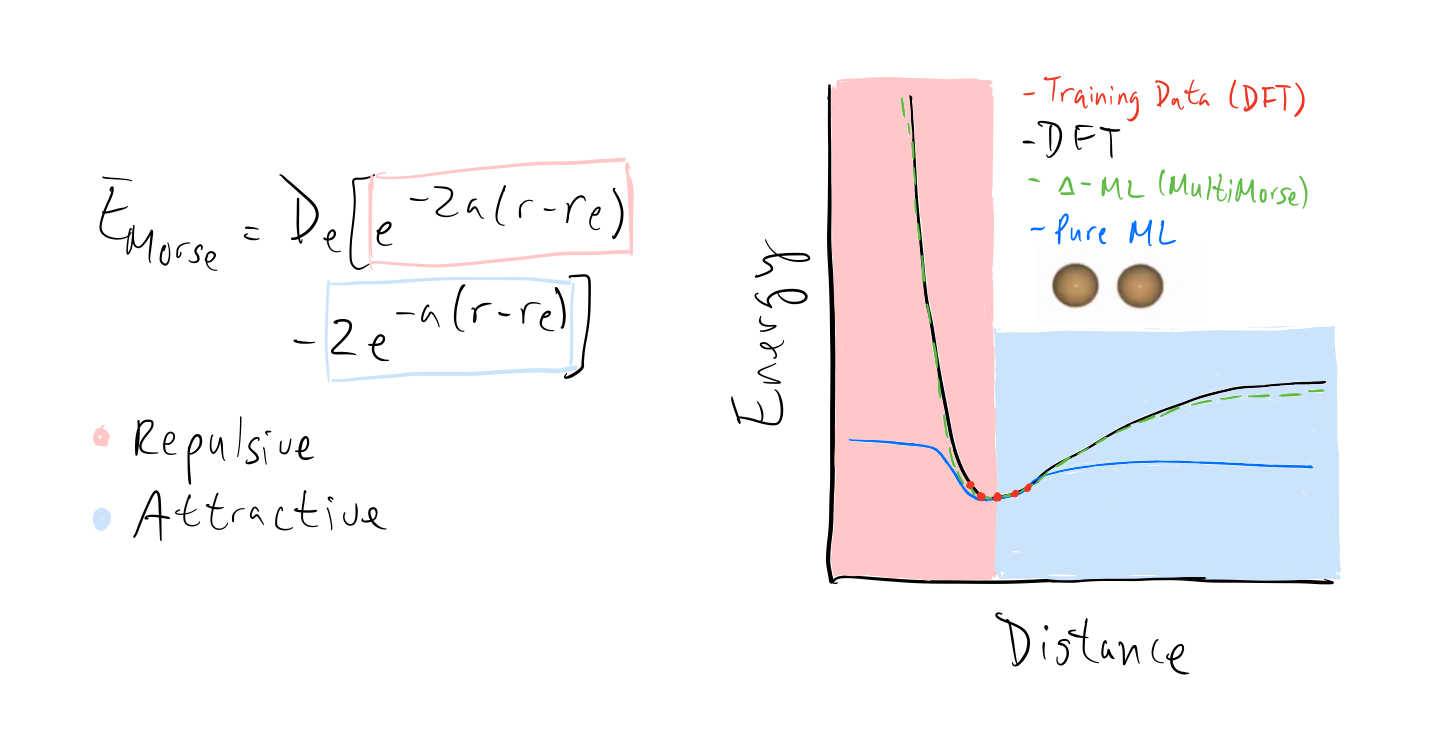 E_Morse = D_e[e^{-2a(r-re)}
-2e^{-a(r-re)}]
Repulsive
Attractive
- Training Data (DFT)
- DFT
- Δ-ML (MultiMorse)
- Pure ML
Energy
Distance